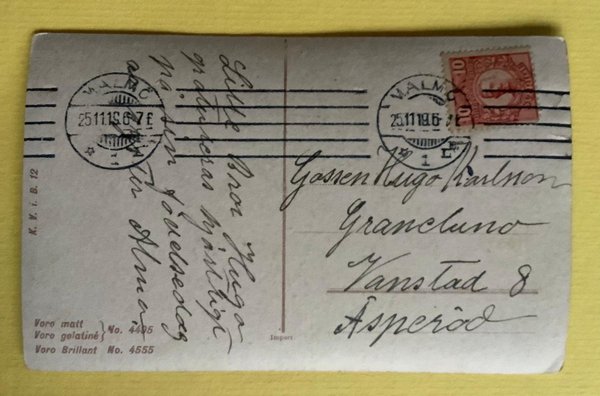 Lille Bror Hugo
gratuleras hjärtligt
på sin födelsedag
av Syster Alma.
MALMÖ
25.11.19.6-7 E
1
MALMÖ
25.11.19.6-7 E
1
10
10
Gossen Hugo Karlsson
Granelund
Vanstad 8
Äsperöd
K. V. i. B. 12
Voro matt
Voro gelatiné } No. 4495
Voro Brillant No. 4555
Import